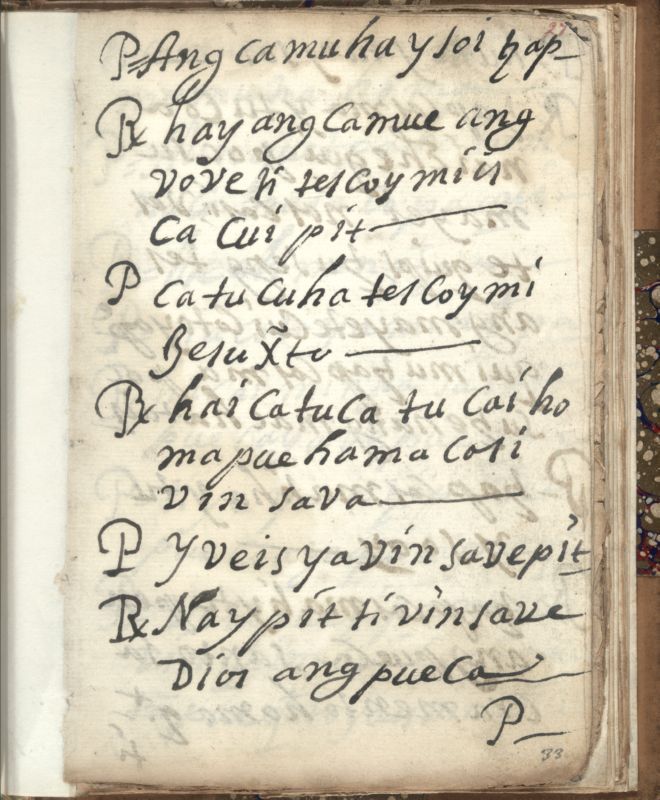 P Ang camuhaysoi hap_
R hay ang Camue ang
vove ti tescoymiis
Ca Cui pit
P Catucuha tescoymi
Besu Xto
R hai Catuca tu Cai ho
mapue hama Cosi
vin sava
P Y veis ya vin savepit
R Nay pit ti vin save
Dios ang pueca
P_
33